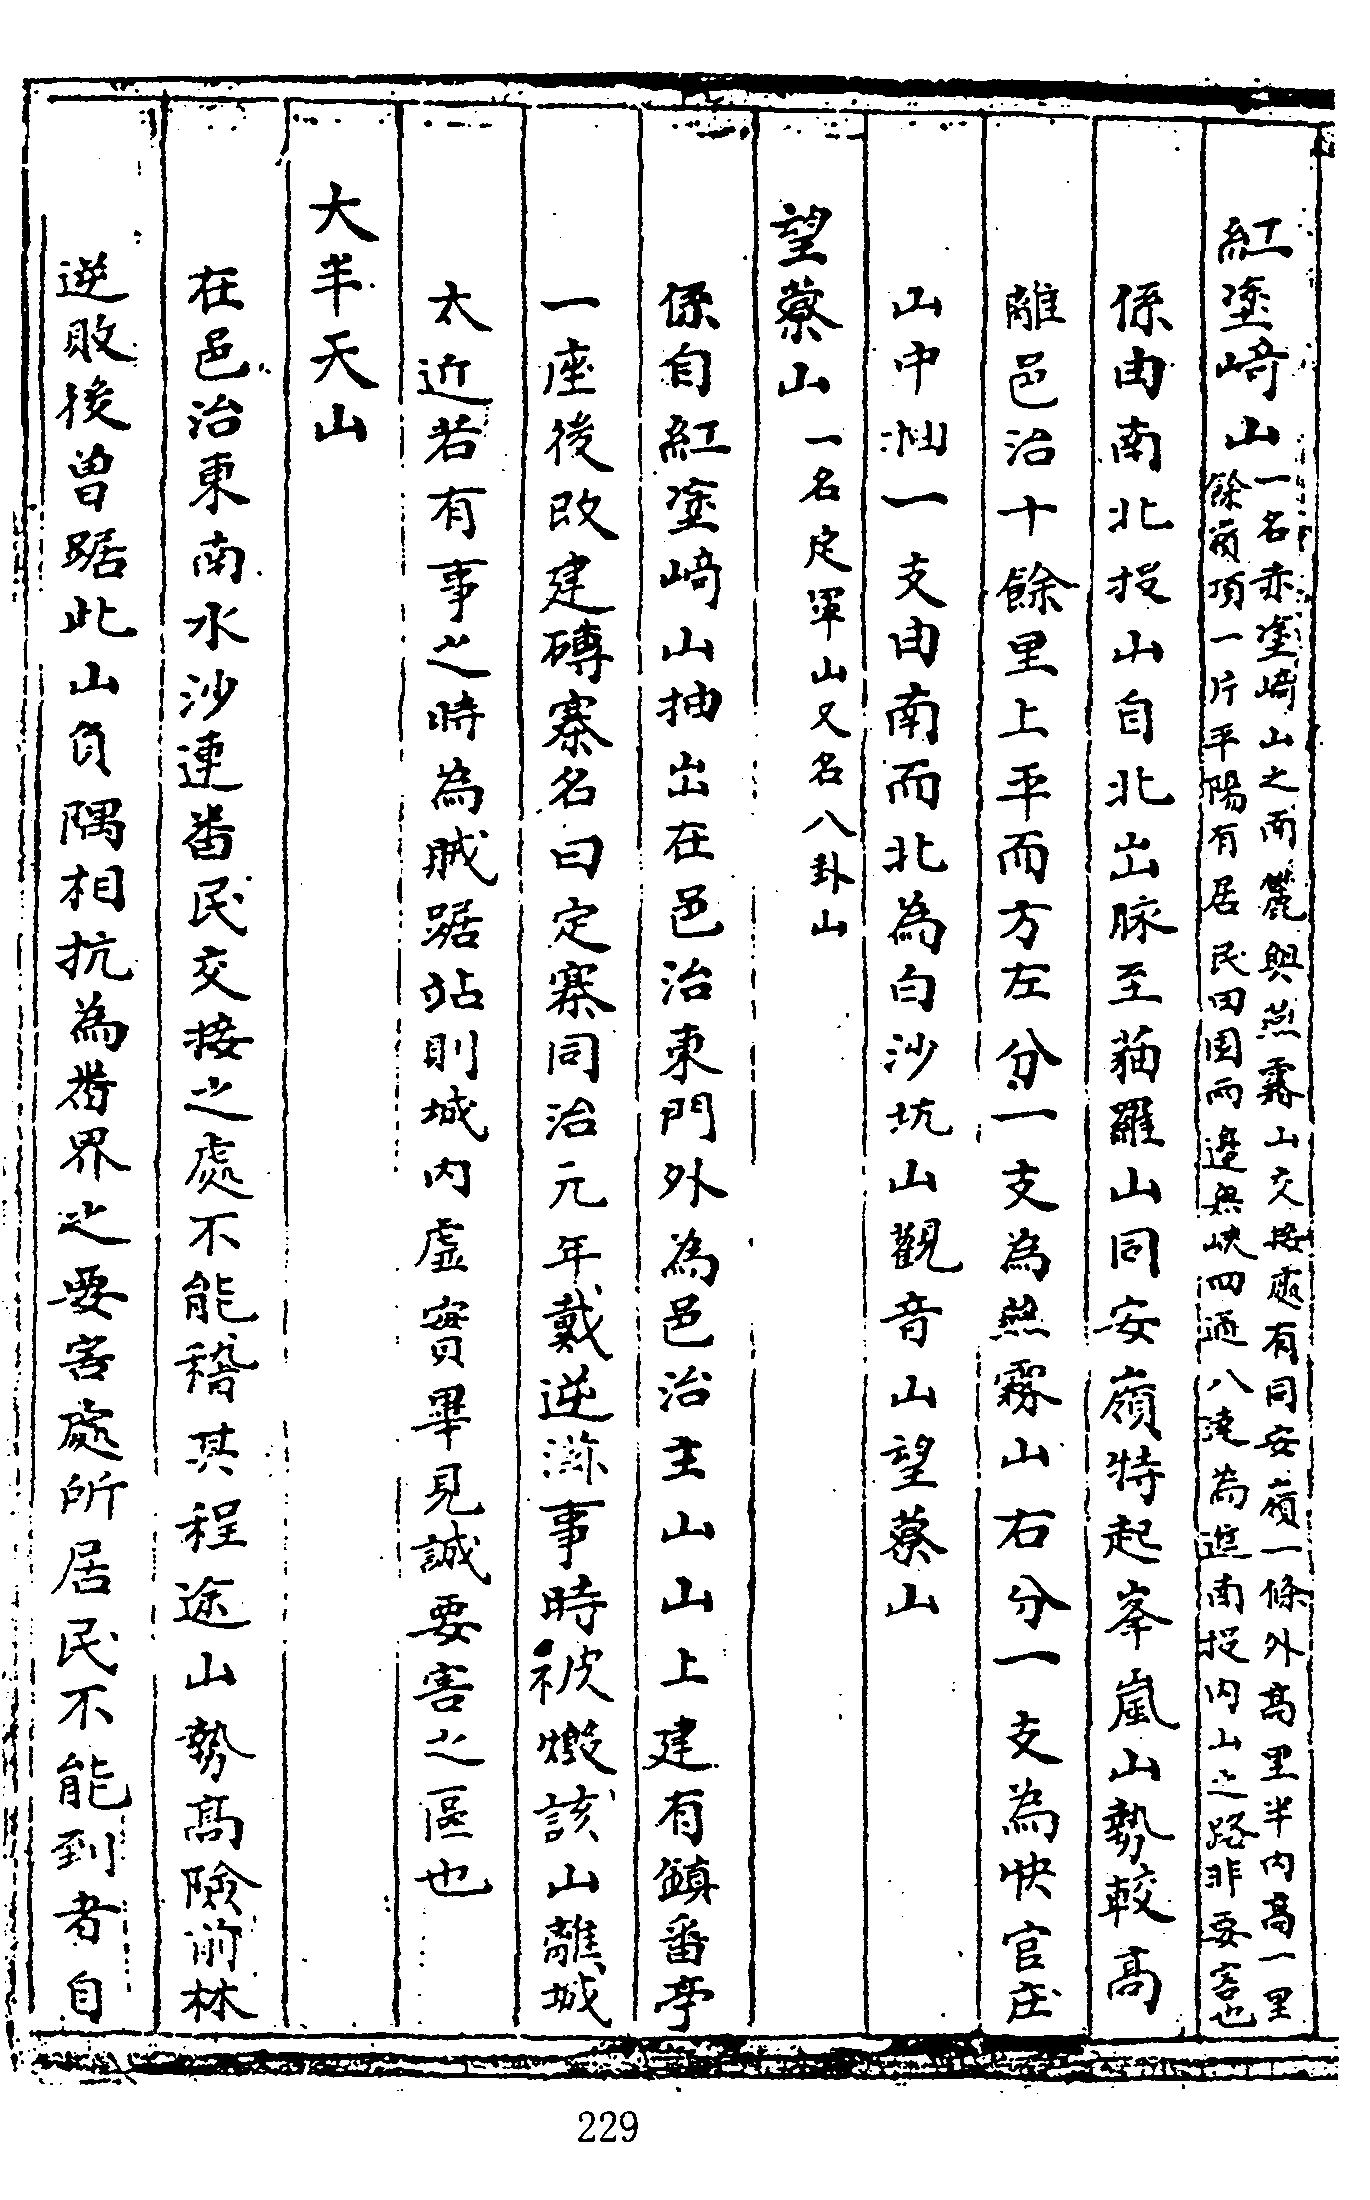 紅塗崎山
一名赤塗崎山之南麓與燕霧山交接處有同安嶺一條外高里半內高一里
餘嶺頂一片平陽有居民田園兩邊無峽四通八達為進南投內山之路非要害也
係由南北投山自北出脉至猫羅山同安嶺特起峯嵐山勢較高
離邑治十餘里上平而方左分一支為燕霧山右分一支為快官庄
山中抽一支由南而北為白沙坑山觀音山望藔山
望藔山 一名定軍山又名八卦山
係自紅塗崎山抽出在邑治東門外為邑治主山山上建有鎮番亭
一座後改建磚寨名曰定寨同治元年戴逆滋事時被燬該山離城
太近若有事之時為賊踞站則城內虛實畢見誠要害之區也
大羊天山
在邑治東南水沙連番民交接之處不能稽其程途山勢高險前林
逆敗後曾踞此山負隅相抗為番界之要害處所居民不能到者自
229